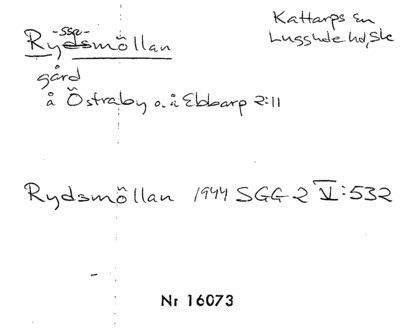 -sse-
Rydsmöllan
Kattarps sn
Luggude hd, Sk
gård
å Östraby o. å Ebbarp 2:11
Rydsmöllan 1944 SGG 2 V:532
Nr 16073